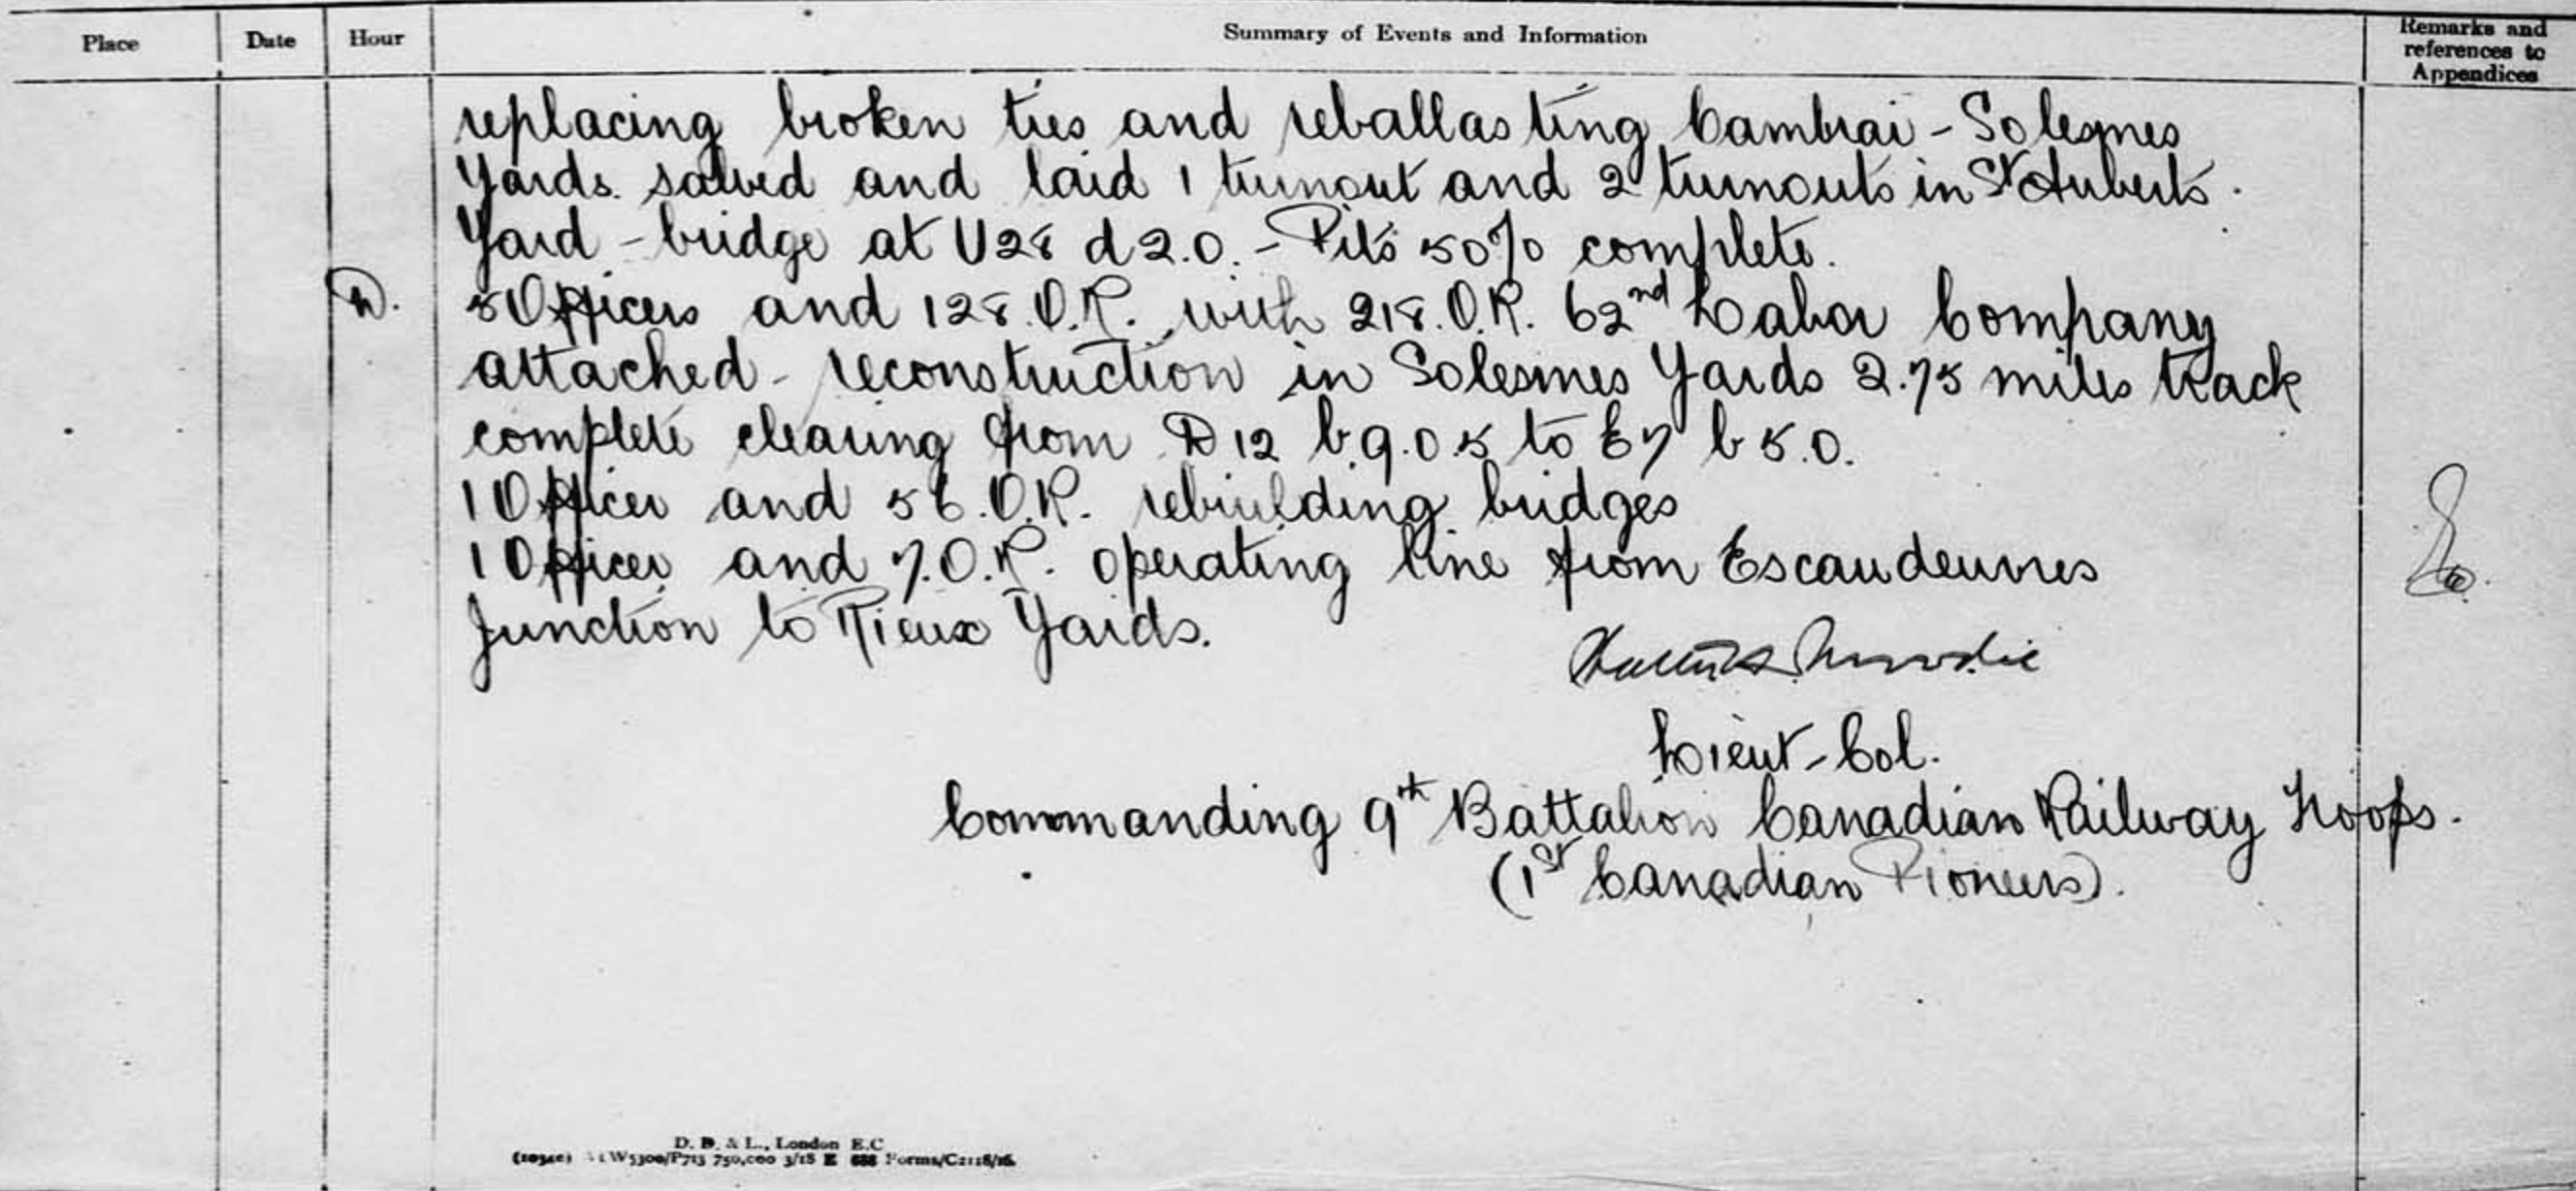 Place Date Hour Summary of Events and Information Remarks and references to Appendices
replacing broken ties and reballasting Cambrai - Solesmes
Yards. salved and laid 1 turnout and 2 turnouts in St Auberts.
Yard - bridge at U28 d 2.0. - Pits 50% complete.
D. 5 Officers and 128. O.R. with 218. O.R. 62nd Labor Company
attached - reconstruction in Solesmes Yards 2.75 miles track
complete clearing from D 12 b.9.0.5 to E7 b 5.0.
1 Officer and 56. O.R. rebuilding bridges
1 Officer and 7. O.R. operating line from Escaudeuvres
Junction to Rieux Yards.
Lieut-Col.
Commanding 9th Battalion Canadian Railway Troops.
(1st Canadian Pioneers).
D. D. & L., London E.C
750,000 3/18 E 688 Forms/C2118/16.